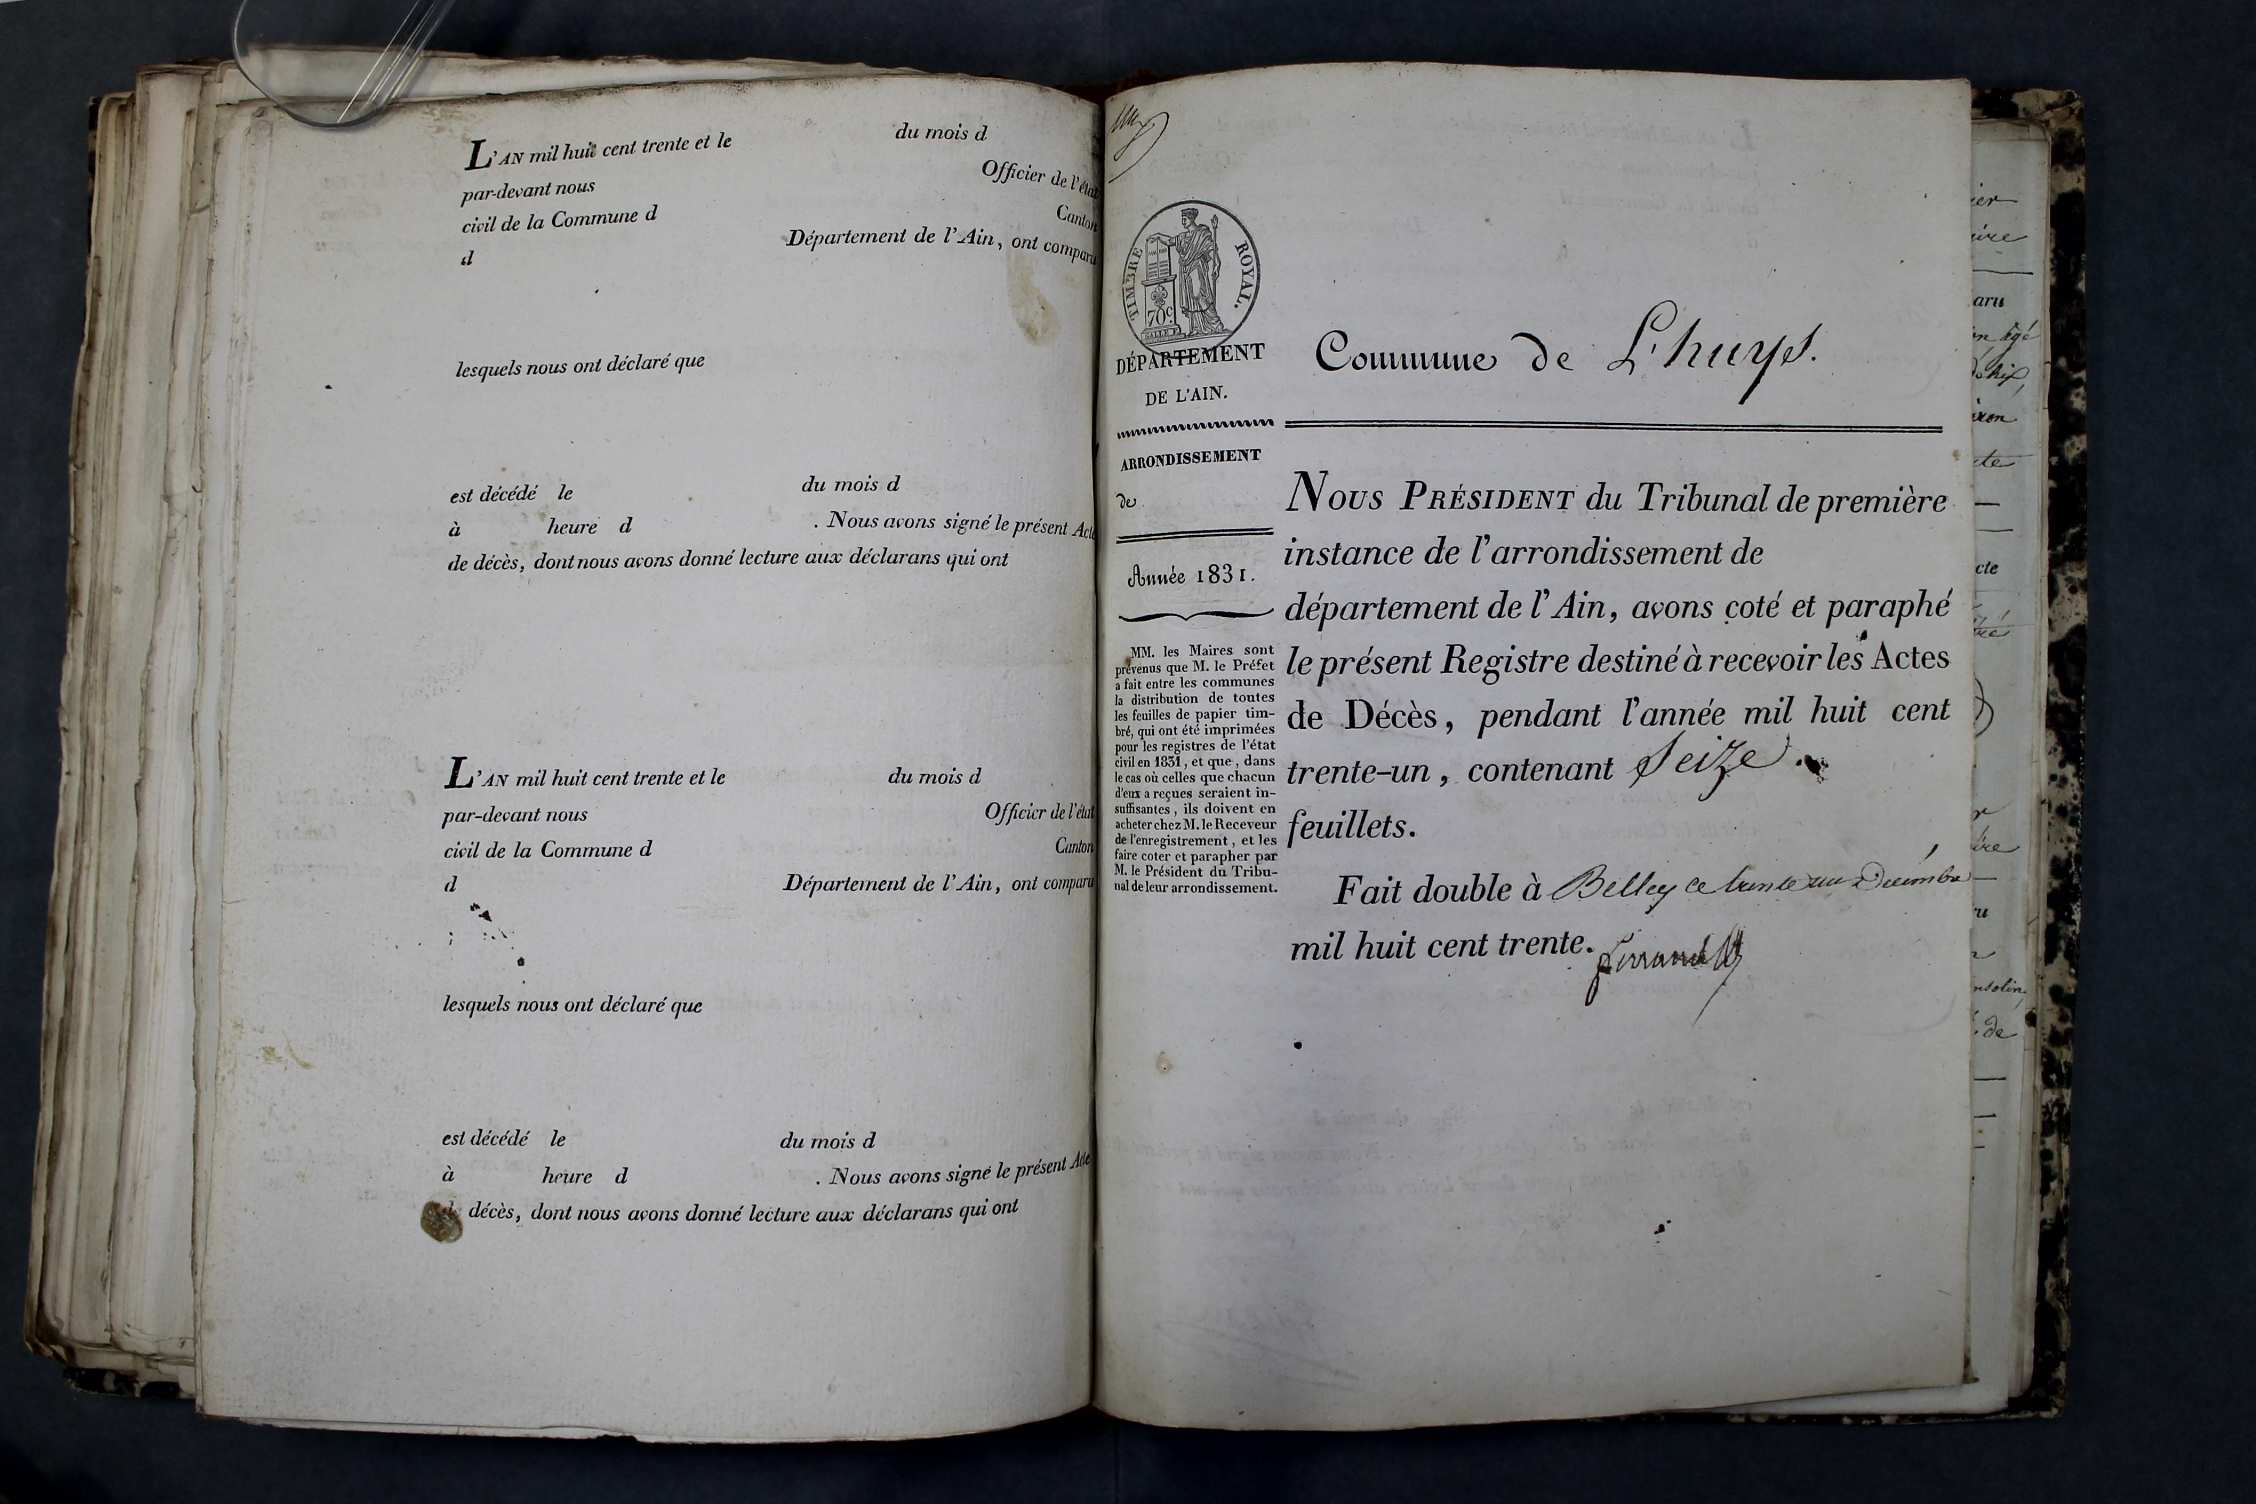 L'AN mil huit cent trente et le du mois d
par-devant nous Officier de l'état
civil de la Commune d Canton
d Département de l'Ain, ont comparu
lesquels nous ont déclaré que
est décédé le du mois d
à heure d . Nous avons signé le présent Acte
de décès, dont nous avons donné lecture aux déclarans qui ont
L'AN mil huit cent trente et le du mois d
par-devant nous Officier de l'état
civil de la Commune d Canton
d Département de l'Ain, ont comparu
lesquels nous ont déclaré que
est décédé le du mois d
à heure d . Nous avons signé le présent Acte
de décès, dont nous avons donné lecture aux déclarans qui ont
TIMBRE ROYAL.
70c.
DÉPARTEMENT
DE L'AIN.
ARRONDISSEMENT
de
Année 1831.
MM. les Maires sont
prévenus que M. le Préfet
a fait entre les communes
la distribution de toutes
les feuilles de papier tim-
bré, qui ont été imprimées
pour les registres de l'état
civil en 1831, et que, dans
le cas où celles que chacun
d'eux a reçues seraient in-
suffisantes, ils doivent en
acheter chez M. le Receveur
de l'enregistrement, et les
faire coter et parapher par
M. le Président du Tribu-
nal de leur arrondissement.
Commune de Lhuys.
NOUS PRÉSIDENT du Tribunal de première
instance de l'arrondissement de
département de l'Ain, avons coté et paraphé
le présent Registre destiné à recevoir les Actes
de Décès, pendant l'année mil huit cent
trente-un, contenant Seize
feuillets.
Fait double à Belley ce trente un Décembre
mil huit cent trente.
aru
cte